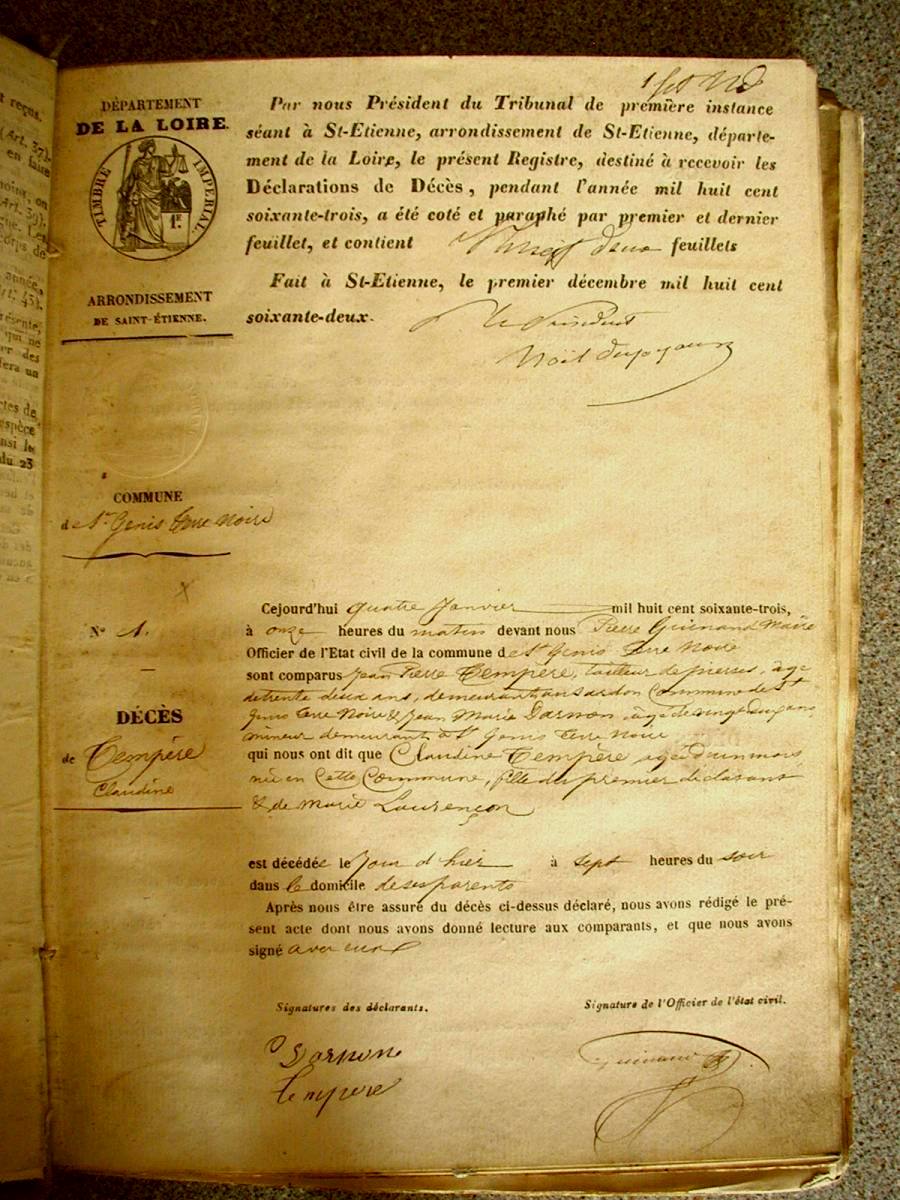 DÉPARTEMENT
DE LA LOIRE.
TIMBRE IMPERIAL.
1.F
ARRONDISSEMENT
DE SAINT-ÉTIENNE.
Par nous Président du Tribunal de première instance
séant à St-Etienne, arrondissement de St-Etienne, départe-
ment de la Loire, le présent Registre, destiné à recevoir les
Déclarations de Décès, pendant l'année mil huit cent
soixante-trois, a été coté et paraphé par premier et dernier
feuillet, et contient feuillets
Fait à St-Etienne, le premier décembre mil huit cent
soixante-deux.
Le Président
Noël
COMMUNE
de St Genis Terre Noire
N° 1.
DÉCÈS
de Tempère
Claudine
Cejourd'hui quatre Janvier mil huit cent soixante-trois,
à onze heures du matin devant nous Pierre Guinand Maire
Officier de l'Etat civil de la commune de St Genis Terre Noire
sont comparus Jean Pierre Tempère, tailleur de pierres, âgé
de trente deux ans, demeurant Commune de St
Genis Terre Noire & Jean Marie Darnon, âgé de ans,
mineur demeurant à St Genis Terre Noire
qui nous ont dit que Claudine Tempère agée d'un mois
née en Cette Commune, fille du premier déclarant
& de Marie Laurençon
est décédée le Jour d'hier à sept heures du soir
dans le domicile de ses parents
Après nous être assuré du décès ci-dessus déclaré, nous avons rédigé le pré-
sent acte dont nous avons donné lecture aux comparants, et que nous avons
signé avec eux
Signatures des déclarants.
Signature de l'Officier de l'état civil.
Darnon
Tempère
Guinand